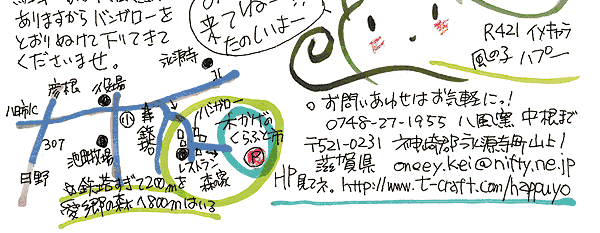 ありますからバンガローを
とおりぬけて下りてきて
くださいませ。
来てねー!!
たのしいよー
R421 イメキャラ
風の子 ハプー
永源寺
彦根
役場
八日市IC
小
鉄塔
バンガロー
木かげの
くらふと市
307
池田牧場
レストラン
森家
日野
P
鉄塔すぎて200mを
愛郷の森へ800mはいる
○お問いあわせはお気軽にっ!
0748-27-1955 八風窯 中根まで
〒521-0231 神崎郡永源寺町山上
滋賀県 oneey.kei@nifty.ne.jp
HP見てネ。http://www.t-craft.com/happuuyo